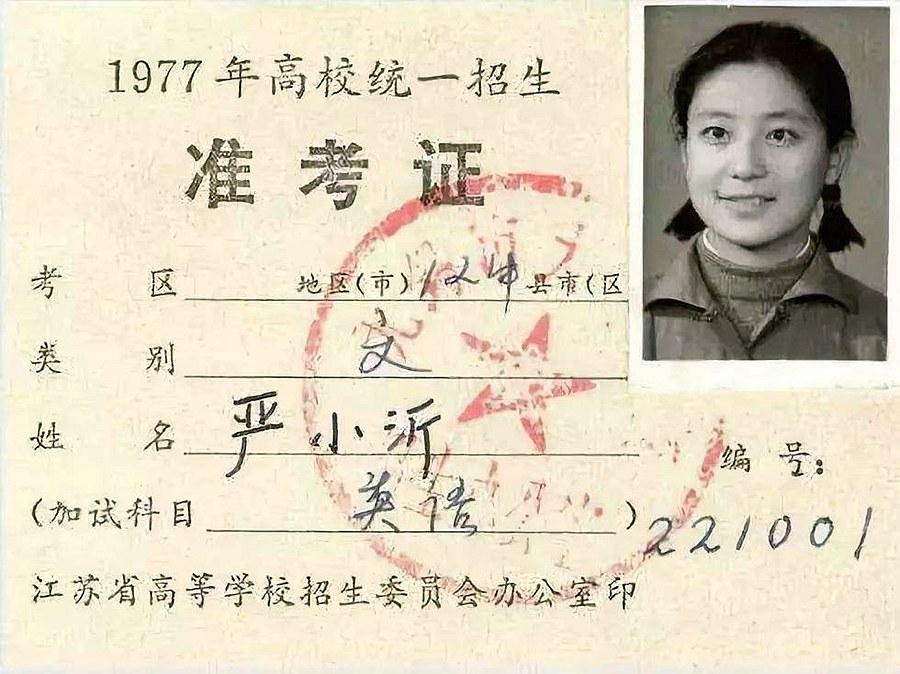 1977年高校统一招生
准考证
考区 地区(市) 县市(区
类别 文
姓名 严小沂
(加试科目 英语)
编号:
221001
江苏省高等学校招生委员会办公室印